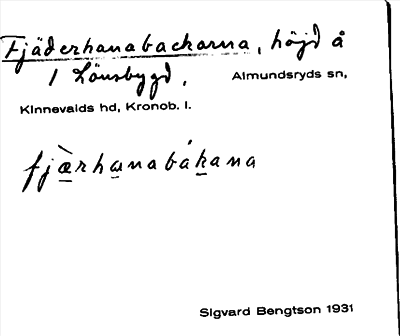 Fjäderhanabackarna, höjd å
1 Lönsbygd. Almundsryds sn,
Kinnevalds hd, Kronob. l.
fjæ̀rhanabákana
Sigvard Bengtson 1931